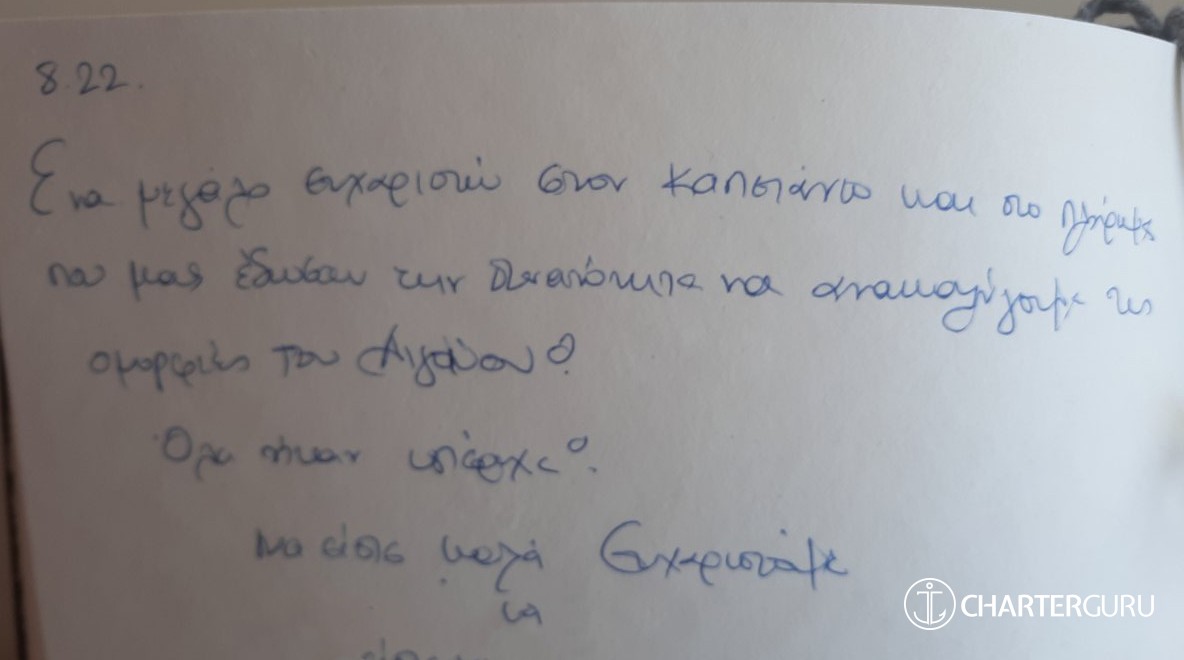 8.22.
Ένα μεγάλο ευχαριστώ στον καπετάνιο και στο πλήρωμα
που μας έδωσαν την δυνατότητα να ανακαλύψουμε τις
ομορφιές του Αιγαίου!
Όλα ήταν υπέροχα!
Να είστε καλά Ευχαριστούμε
CHARTERGURU